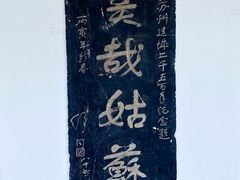 苏州建城二千五百年纪念题
美哉姑蘇
丙寅年新春